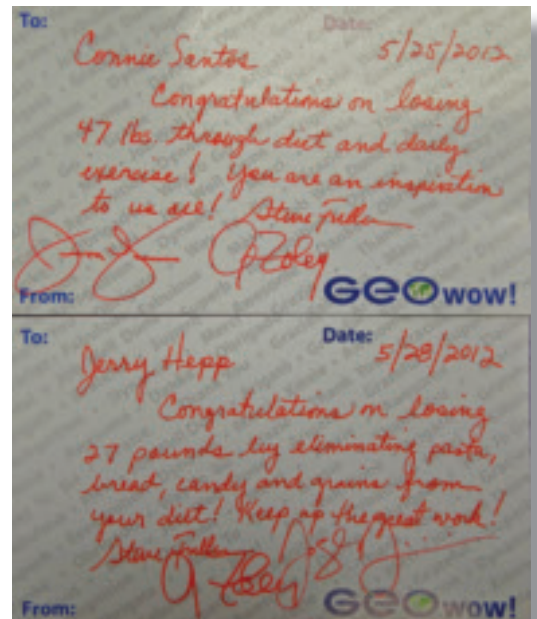 To: Date:
Connie Santos 5/25/2012
Congratulations on losing
47 lbs. through diet and daily
exercise! You are an inspiration
to us all! Steve
From: GEO wow!
To: Date: 5/28/2012
Jerry Hepp
Congratulations on losing
27 pounds by eliminating pasta,
bread, candy and grains from
your diet! Keep up the great work!
Steve
From: GEO wow!